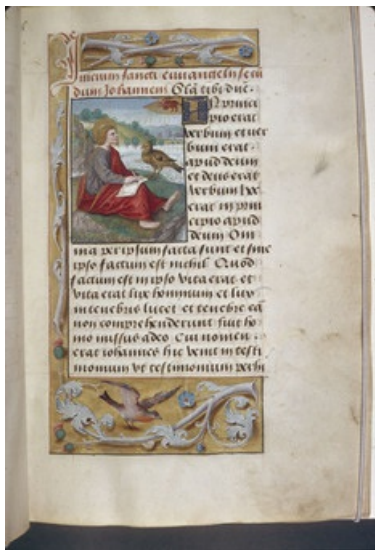 Inicium sancti euangelii secu
dum Johannem Gla tibi dne.
In princi
pio erat
verbum et ver
bum erat
apud deum
et deus erat
verbum hoc
erat in prin
cipio apud
deum Om
nia per ipsum facta sunt et sine
ipso factum est nichil Quod
factum est in ipso vita erat et
vita erat lux hominum et lux
in tenebris lucet et tenebre ea
non comprehenderunt fuit ho
mo missus a deo Cui nomen
erat iohannes hic venit in testi
monium vt testimonium perhi